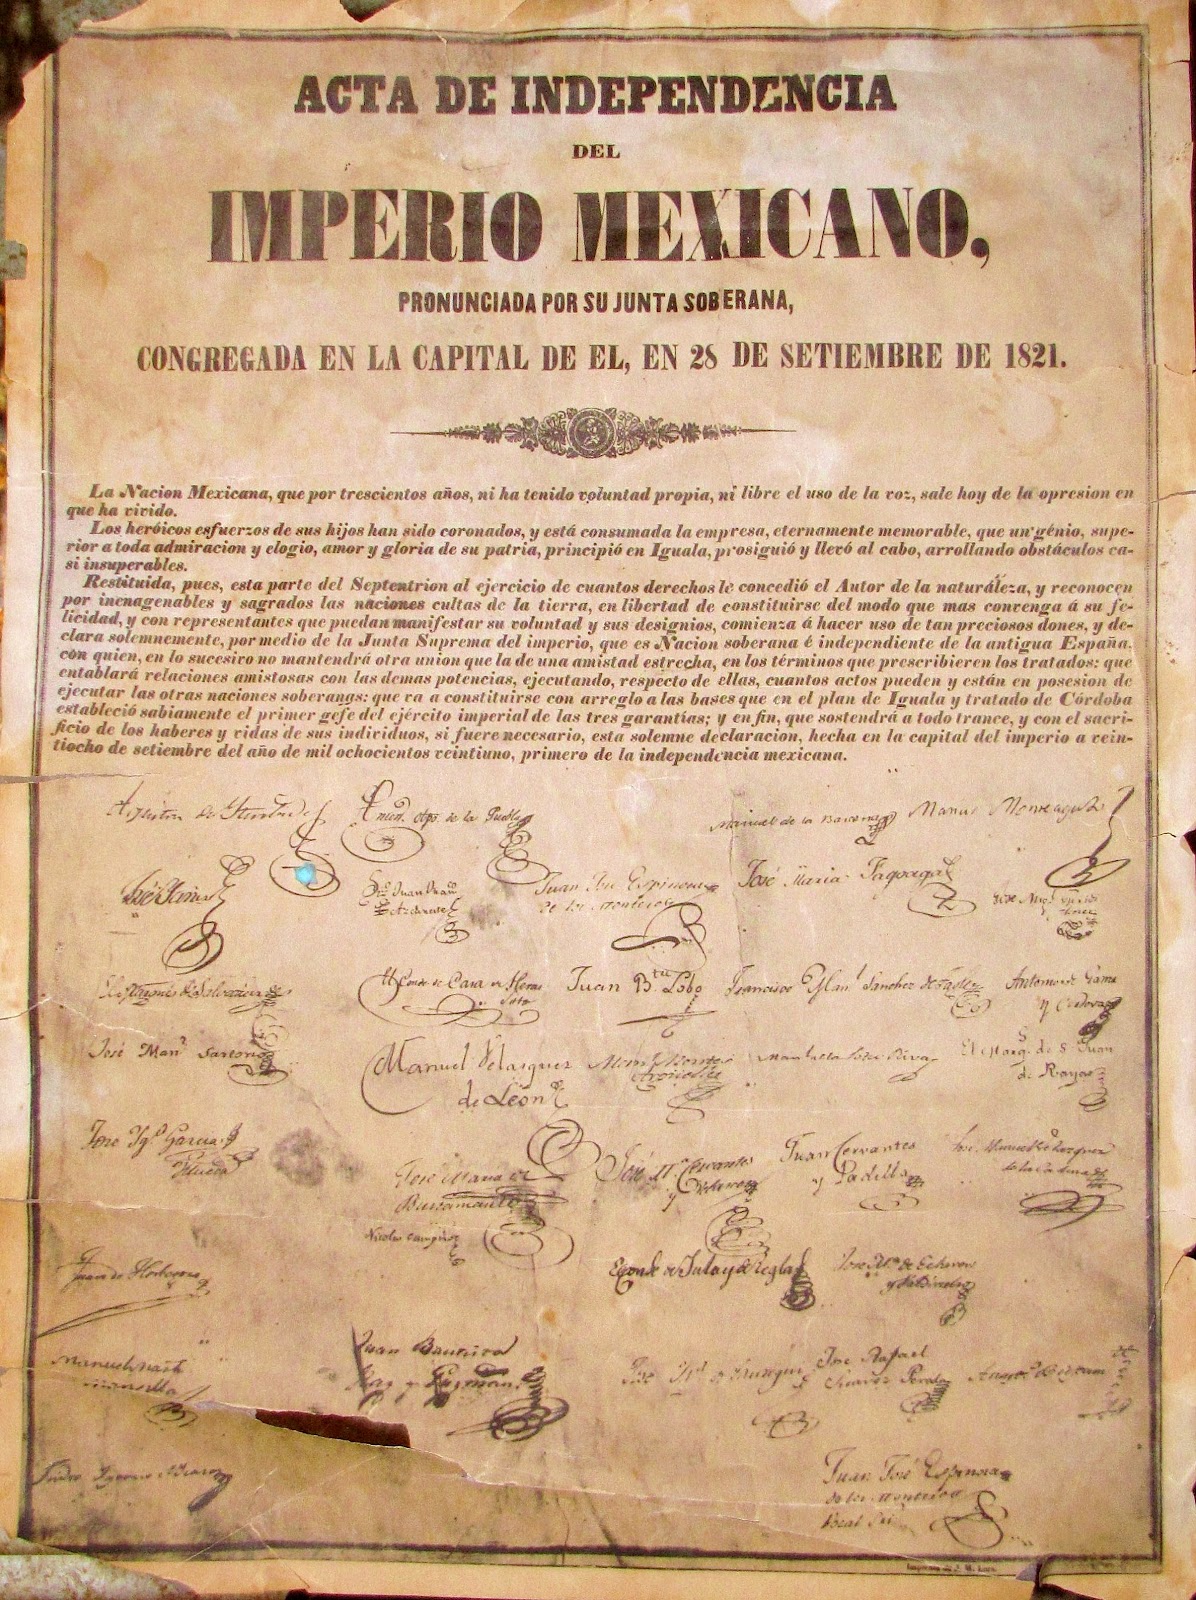 ACTA DE INDEPENDENCIA
DEL
IMPERIO MEXICANO,
PRONUNCIADA POR SU JUNTA SOBERANA,
CONGREGADA EN LA CAPITAL DE EL, EN 28 DE SETIEMBRE DE 1821.
La Nacion Mexicana, que por trescientos años, ni ha tenido voluntad propia, ni libre el uso de la voz, sale hoy de la opresion en
que ha vivido.
Los heróicos esfuerzos de sus hijos han sido coronados, y está consumada la empresa, eternamente memorable, que un génio, supe-
rior a toda admiracion y elogio, amor y gloria de su patria, principió en Iguala, prosiguió y llevó al cabo, arrollando obstáculos ca-
si insuperables.
Restituida, pues, esta parte del Septentrion al ejercicio de cuantos derechos le concedió el Autor de la naturáleza, y reconocen
por inenagenables y sagrados las naciones cultas de la tierra, en libertad de constituirse del modo que mas convenga á su fe-
licidad, y con representantes que puedan manifestar su voluntad y sus designios, comienza á hacer uso de tan preciosos dones, y de-
clara solemnemente, por medio de la Junta Suprema del imperio, que es Nacion soberana é independiente de la antigua España,
con quien, en lo sucesiro no mantendrá otra union que la de una amistad estrecha, en los términos que prescribieren los tratados: que
entablará relaciones amistosas con las demas potencias, ejecutando, respecto de ellas, cuantos actos pueden y están en posesion de
ejecutar las otras naciones soberangs: que va a constituirse con arreglo a las bases que en el plan de Iguala y tratado de Córdoba
estableció sabiamente el primer gefe del ejército imperial de las tres garantías; y en fin, que sostendrá a todo trance, y con el sacri-
ficio de los haberes y vidas de sus individuos, si fuere necesario, esta solemne declaracion, hecha en la capital del imperio a vein-
tiocho de setiembre del año de mil ochocientos veintiuno, primero de la independencia mexicana.
Agustin de
de la Puebla
Manuel de la Barcena
Manuel
José
Juan José Espinosa
de los Monteros
José Maria Fagoaga
El Marques de Salvatierra
El Conde de Casa de Heras
Soto
Juan Bta Lobo
Francisco Sanchez de Tagle
Antonio de Gama
y Cordova
José Man.l Sartorio
Manuel Velasquez
de Leon
Manuel Montes
Arguelles
El Marq. de S. Juan
de Rayas
José Ig.o Garcia
Illueca
José Maria de
Bustamante
José M.a Cervantes
y Velasco
Juan Cervantes
y Padilla
José Manuel Velazquez
de la Cadena
Nicolas Campero
Juan de Horbegoso
El conde de Jala y de Regla
José M.a de Echevers
y Valdivielso
Manuel Mart.z
Mansilla
Juan Bautista
Raz y Guzman
José Rafael
Suarez Pereda
Isidro Ignacio
Juan José Espinosa
de los Monteros
Vocal